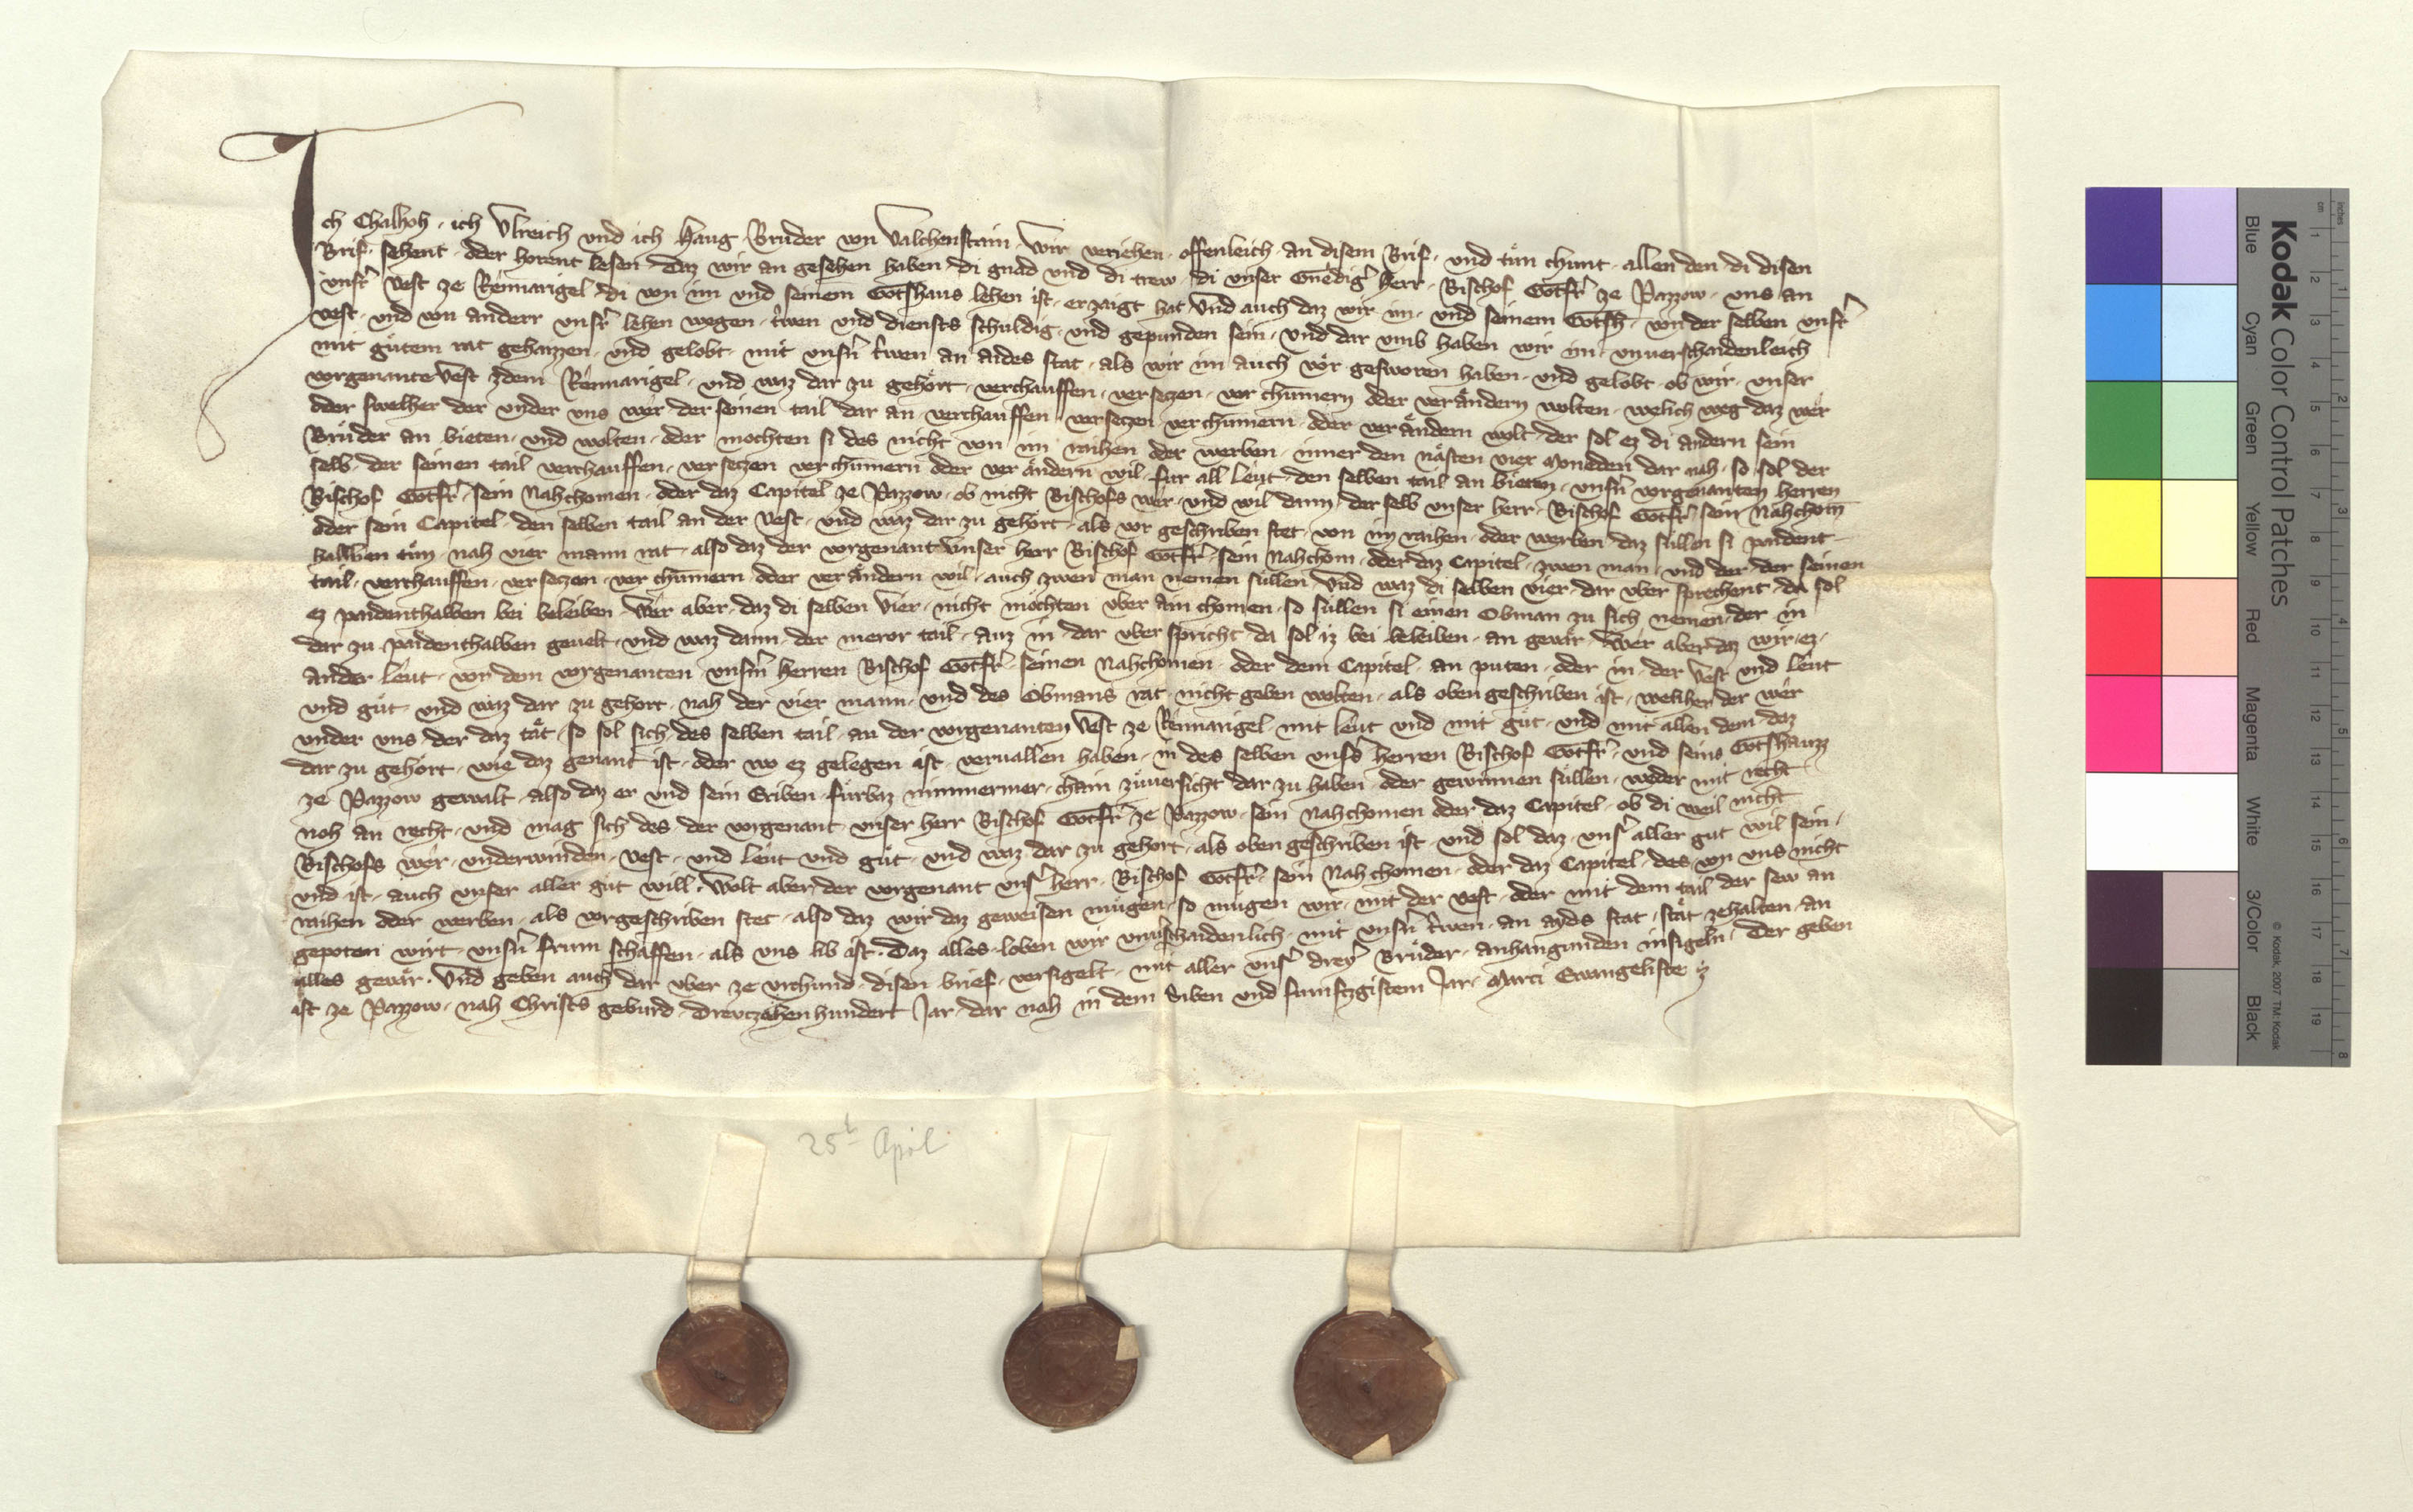 Ich Chalhoh · ich Ulreich und ich Haug · Brüder von Valchenstain · Wir veriehen · offenleich · an disem Brif · und tün chunt · allen den · di disen
Brif · sehent · oder horent lesen · Daz wir an gesehen haben · di gnad und di trew · di unser Gnëdig' herr · Bischof Gotfr' ze Pazzow · uns an
unsr' Vest ze Rënnarigel · di von im und seinem Gotshaus lehen ist · erzaigt hat · Und auch daz wir im · und seinem Gotsh' · von der selben unsr'
vest · und von anderr unsr' lehen wegen · trwen und diensts schuldig · und gepunden sein · und dar umb haben wir im · unverschaidenleich
mit gütem rat gehaizzen · und gelobt · mit unsn' trwen an aides stat · als wir im auch vor gesworen haben · und gelobt · ob wir · unser
vorgenante Vest zdem Rënnarigel · und waz dar zu gehört · verchauffen · versezen · verchümern oder verändern wolten · welich weg daz wër
oder swelher der under uns wër der seinen tail dar an · verchauffen · versezen · verchümern · oder verändern wolt · der sol ez di andern sein
Brüder an bieten · und wolten · oder mochten si des nicht von im raihen oder werben · inner den nästen vier Moneden dar nah · so sol der
selb · der seinen tail verchauffen · versezen verchümern oder verändern wil · für all leut · den selben tail an bieten · unsn' vorgenanten herren
Bischof Gotfr' · sein Nahchomen · oder daz Capitel ze Pazzow · ob nicht Bischofs wër · und wil dann · der selb unser herr · Bischof Gotfr' · sein Nahchom
oder sein Capitel · den selben tail an der Vest · und waz dar zu gehört · als vor geschriben stet · von im raihen · oder werben · daz süllen si paident
halben tün · nah vier mann rat · also daz der vorgenant Unser herr Bischof Gotfr' · sein Nahchom · oder daz Capitel · zwen man · und der · der seinen
tail · verchauffen · versezen · verchümern · oder verändern wil · auch zwen man nemen süllen · Und waz di selben vier · dar uber sprechent · da sol
ez paidenthalben bei beleiben · Wër aber · daz di selben Vier · nicht möchten uber ain chomen · so süllen si einen Obman zu sich nemen · der in
dar zu · paidenthalben gevelt · und waz dann · der meror tail · auz in dar uber spricht · da sol iz bei beleiben · an gevär · Wër aber daz wir · ez ·
ander leut · vor dem vorgenanten · unsm' herren Bischof Gotfr' · seinen Nahchomen · oder dem Capitel · an puten · oder in · der Vest und leut
und güt · und waz dar zu gehort · nah der vier mann · und des Obmans rat · nicht geben wolten · als oben geschriben ist · welher der wër
under uns · der daz tät · so sol sich des selben tail · an der vorgenanten Vest ze Rënnarigel · mit leut und mit güt · und mit allen dem daz
dar zu gehört · wie daz genant ist · oder wo ez gelegen ist · vervallen haben · in des selben unsrs herren Bischof Gotfr' · und seins Gotshauzz
ze Pazzow gewalt · also daz er und sein Eriben · fürbaz nimmermer · chain züversicht dar zu haben · oder gewinnen süllen · weder mit recht
noh an recht · und mag sich des der vorgenant unser herr Bischof Gotfr' ze Pazzow · sein Nahchomen oder daz Capitel · ob di weil nicht
Bischofs wër · underwinden · vest · und leut und güt · und waz dar zu gehort · als oben geschriben ist · und sol daz · unsr' aller gut wil sein ·
und ist · auch unser aller güt will · Wolt aber der vorgenant unsr' herr · Bischof Gotfr' · sein Nahchomen · oder daz Capitel · des von uns nicht
raihen oder werben · als vorgeschriben stet · also daz wir daz geweisen mügen · so mügen wir · mit der vest · oder mit dem tail der sew an
gepoten wirt · unsn' frum schaffen · als uns lib ist · Daz alles · loben wir unuschaidenlich · mit unsn' trwen · an ayds stat · stät zehalten · an
alles gevär · Und geben auch dar uber ze urchund · disen brief · versigelt · mit aller unsr' dreyr Brüder · anhangunden insigeln · Der geben
ist ze Pazzow · nah Christs geburd · Drevczehen hundert Jar · dar nah in dem Siben und fumfzgistem Jar · Marci Ewangeliste
25t April
Kodak Color Control Patches
Blue Cyan Green Yellow Red Magenta White 3/Color Black
© Kodak, 2007 TM: Kodak
cm 1 2 3 4 5 6 7 8 9 10 11 12 13 14 15 16 17 18 19
inches 1 2 3 4 5 6 7 8